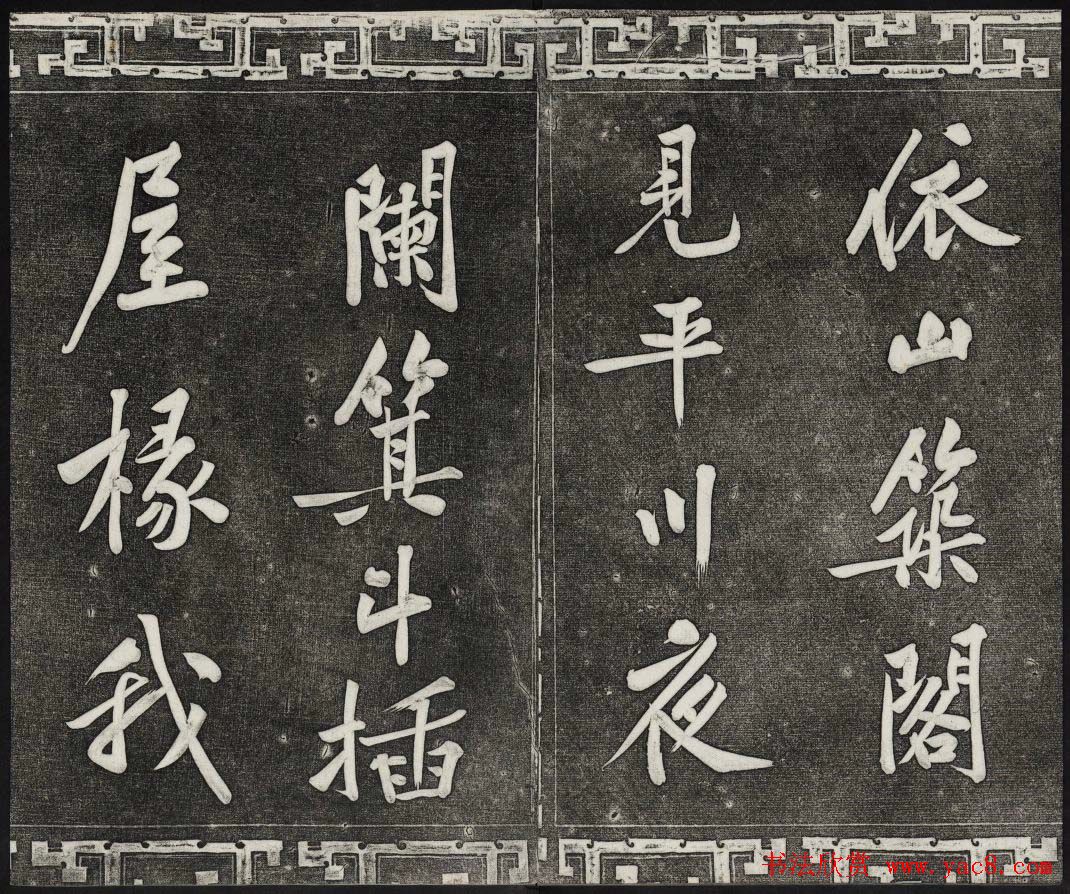 依山築閣
見平川夜
闌箕斗插
屋椽我
书法欣赏 www.yac8.com